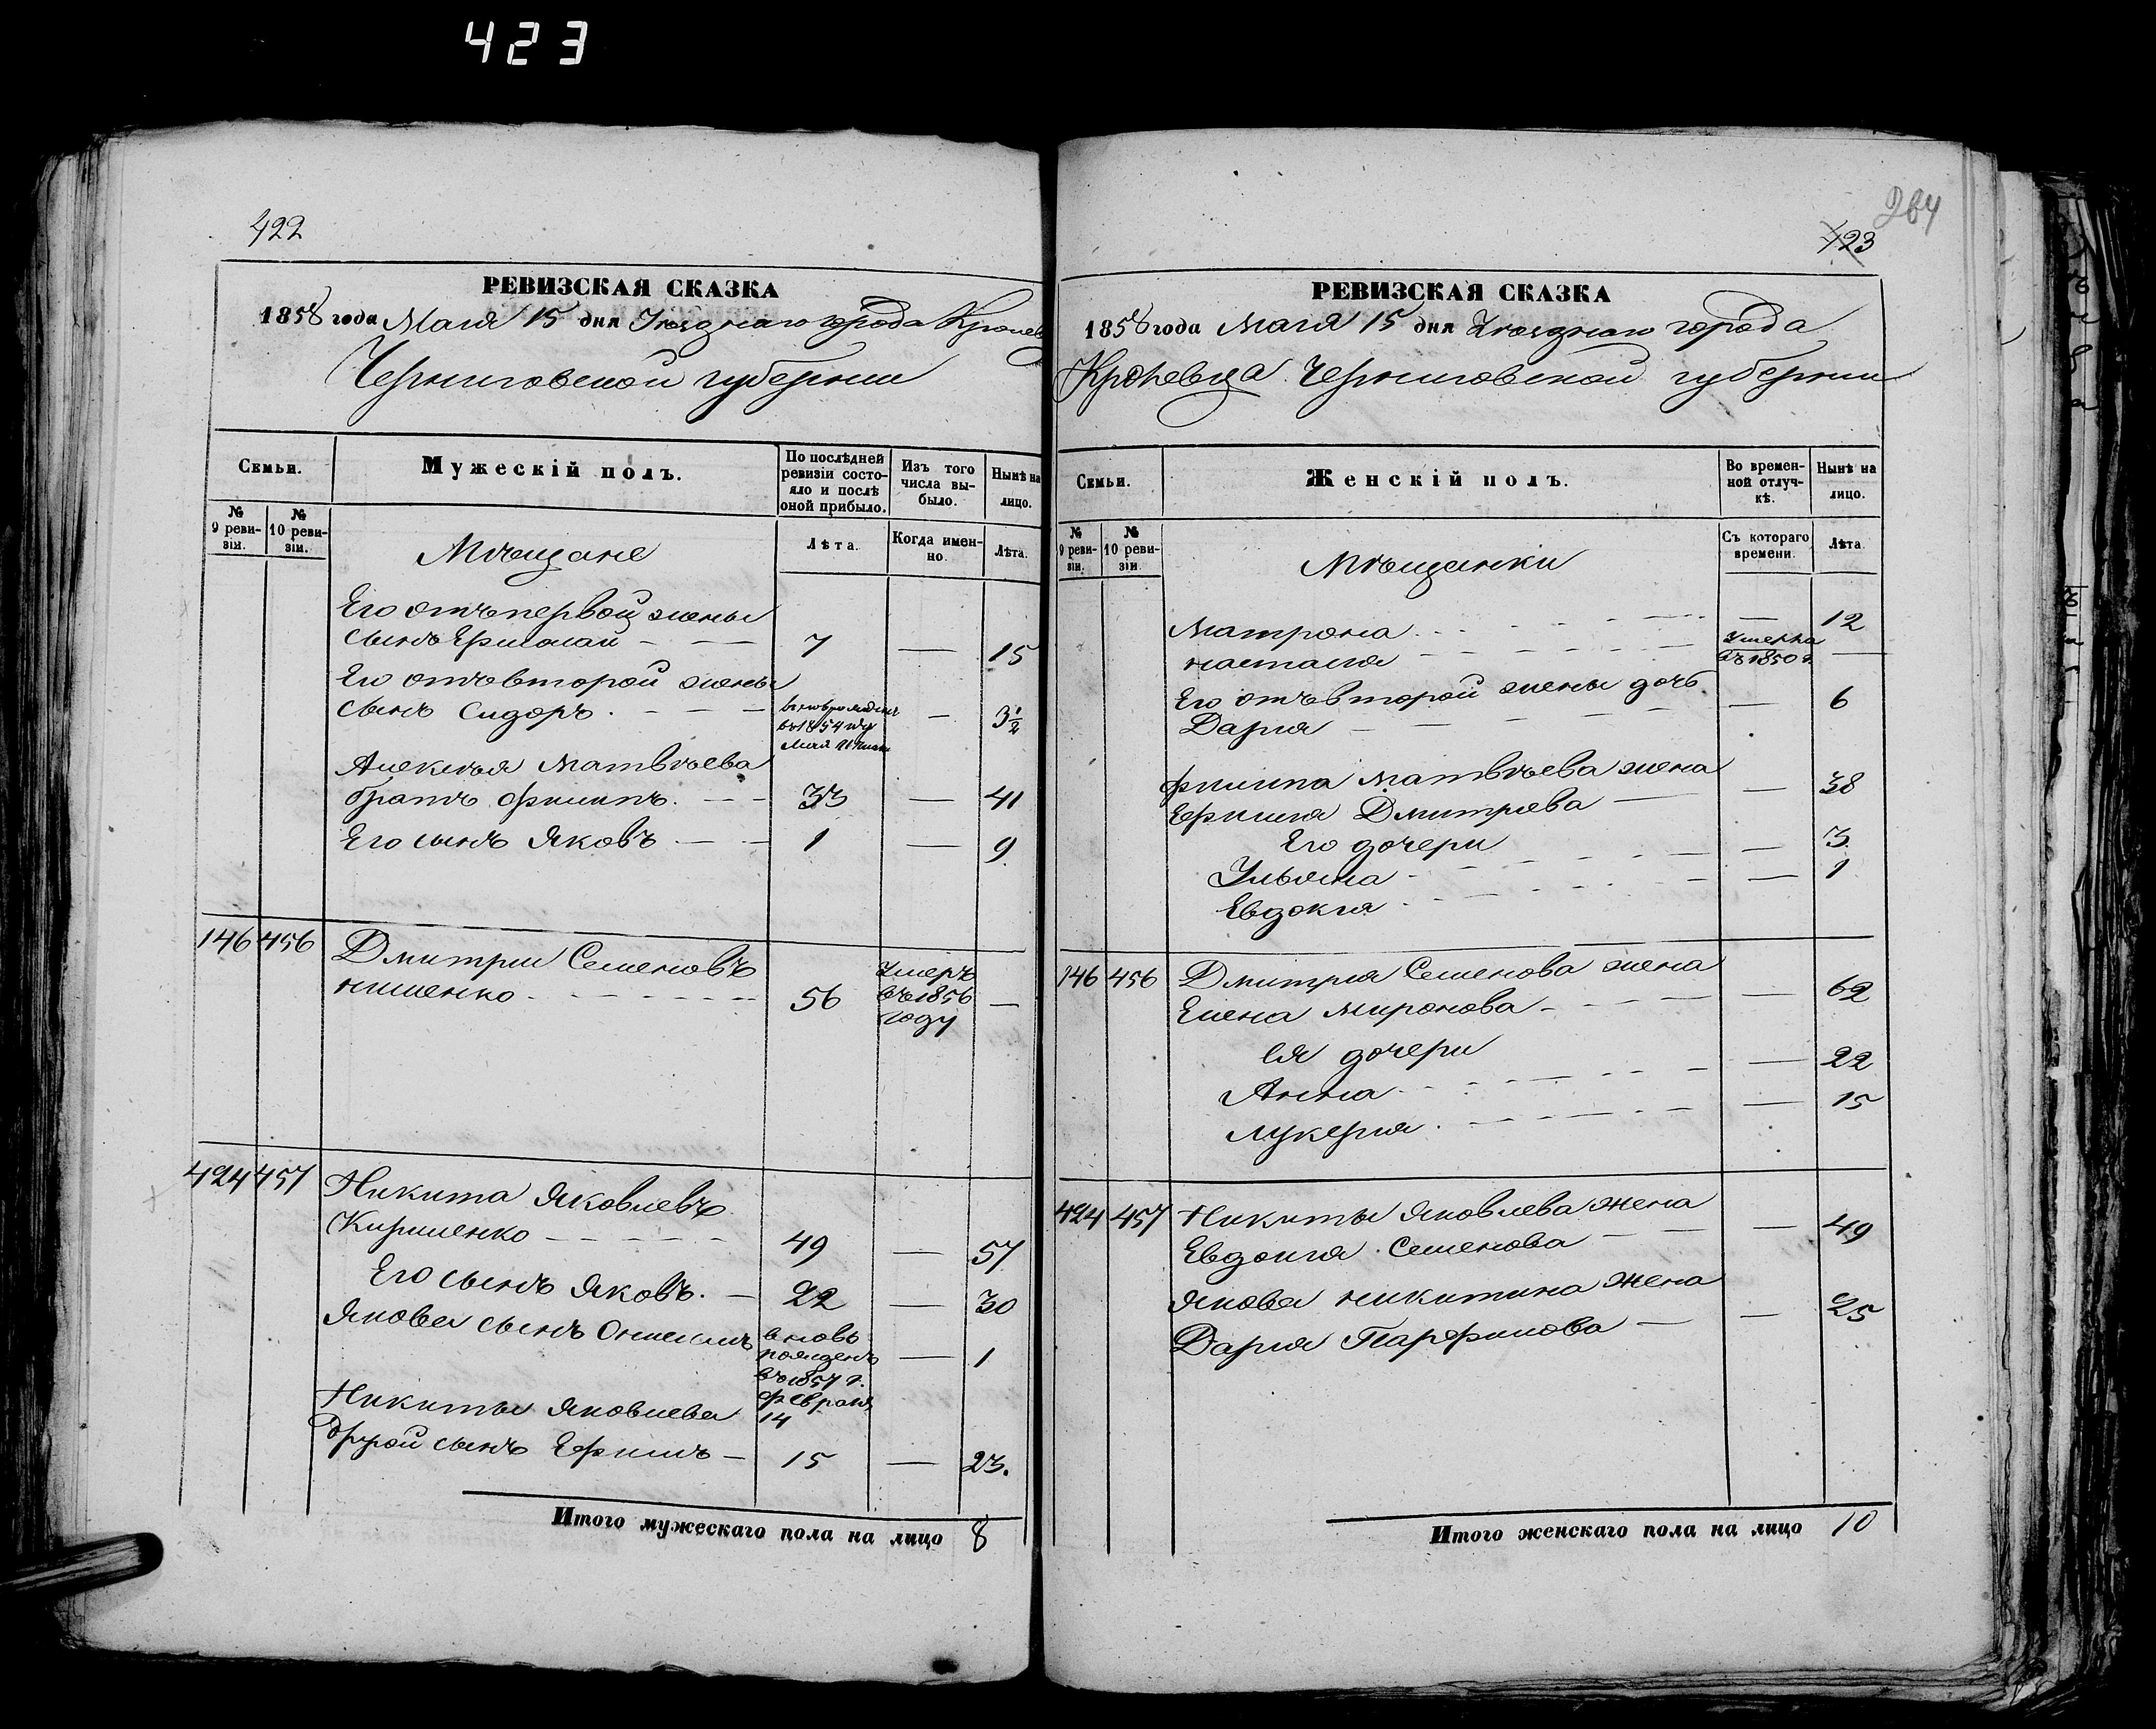 423
422
РЕВИЗСКАЯ СКАЗКА
1858 года Мая 15 дня Уѣзднаго города Кролевца
Черниговской губернии
Семьи.
Мужескій полъ.
По послѣдней ревизіи состояло и послѣ оной прибыло.
Изъ того числа выбыло.
Нынѣ на лицо.
№ 9 ревизіи.
№ 10 ревизіи.
Лѣта.
Когда именно.
Лѣта.
Мѣщане
Его отъ первой жены
сынъ Ермолай 7 — 15
Его отъ второй жены
сынъ Сидоръ вновь рожденъ — 3½
въ 1854 году
Мая
Алексѣя Матвѣева
братъ Филипъ 33 — 41
Его сынъ Яковъ 1 — 9
146 456 Дмитрий Семеновъ Умеръ
56 въ 1856 —
году
424 457 Никита Яковлевъ
Кириенко 49 — 57
Его сынъ Яковъ. 22 — 30
Якова сынъ Онисимъ вновь — 1
рожденъ
въ 1857 г.
Февраля
14
Никиты Яковлева
другой сынъ Ефимъ 15 — 23.
Итого мужескаго пола на лицо 8
264
423
РЕВИЗСКАЯ СКАЗКА
1858 года Мая 15 дня Уѣзднаго города
Кролевца Черниговской губернии
Семьи.
Женскій полъ.
Во временной отлучкѣ.
Нынѣ на лицо.
№ 9 ревизіи.
№ 10 ревизіи.
Съ котораго времени.
Лѣта.
Мѣщанки
Матрона — 12
Настасия Умерла въ 1850 г. —
Его отъ второй жены дочь
Дария — 6
Филипа Матвѣева жена
Ефимия Дмитриева — 38
Его дочери
Ульяна — 3
Евдокия — 1
146 456 Дмитрия Семенова жена
Елена Миронова — 62
ея дочери
Анна — 22
Лукерия — 15
424 457 Никиты Яковлева жена
Евдокия Семенова — 49
Якова Никитина жена
Дария Парфимова — 25
Итого женскаго пола на лицо 10